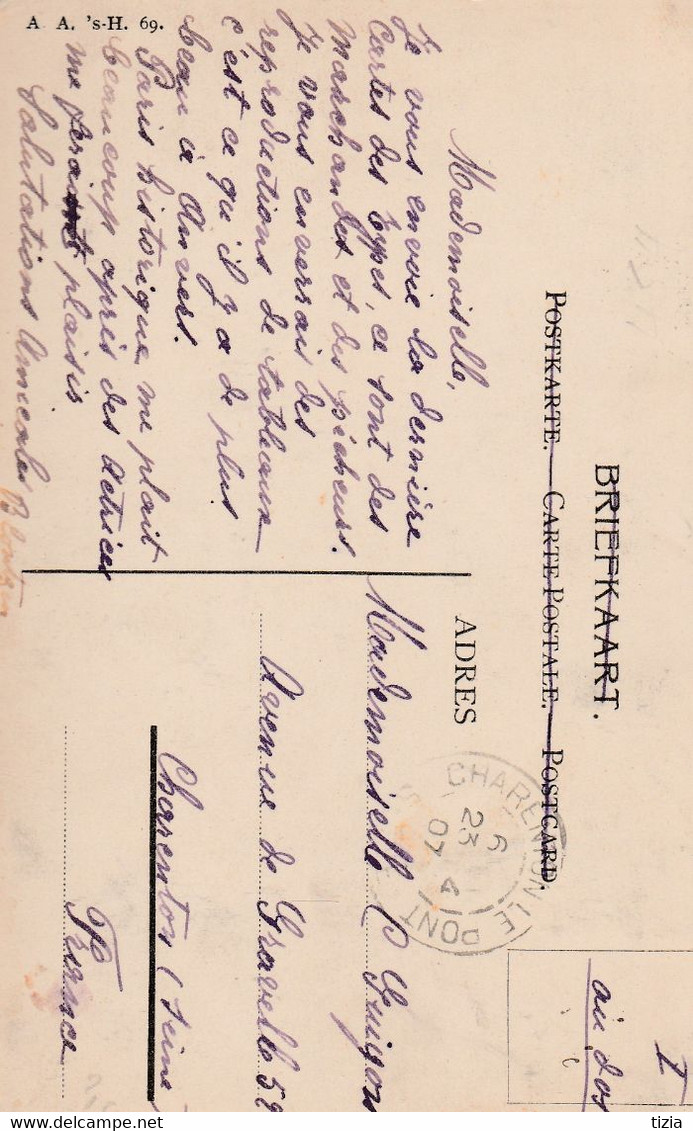 A. A. 's-H. 69.
BRIEFKAART.
POSTKARTE. — CARTE POSTALE. — POSTCARD.
Mademoiselle,
Je vous envoie la dernière
Cartes des types, ce sont des
Marchandes et des pêcheurs.
Je vous enverrais des
reproductions de tableaux
c'est ce qu'il y a de plus
beau à Anvers.
Paris historique me plait
beaucoup après des actrices
me ferait plaisir
Salutations Amicales
ADRES
Mademoiselle C Guigon
Avenue de Gravelle 58
Charenton (Seine)
France
CHARENTON LE PONT
6
23 4
07
T
au dos
tizia